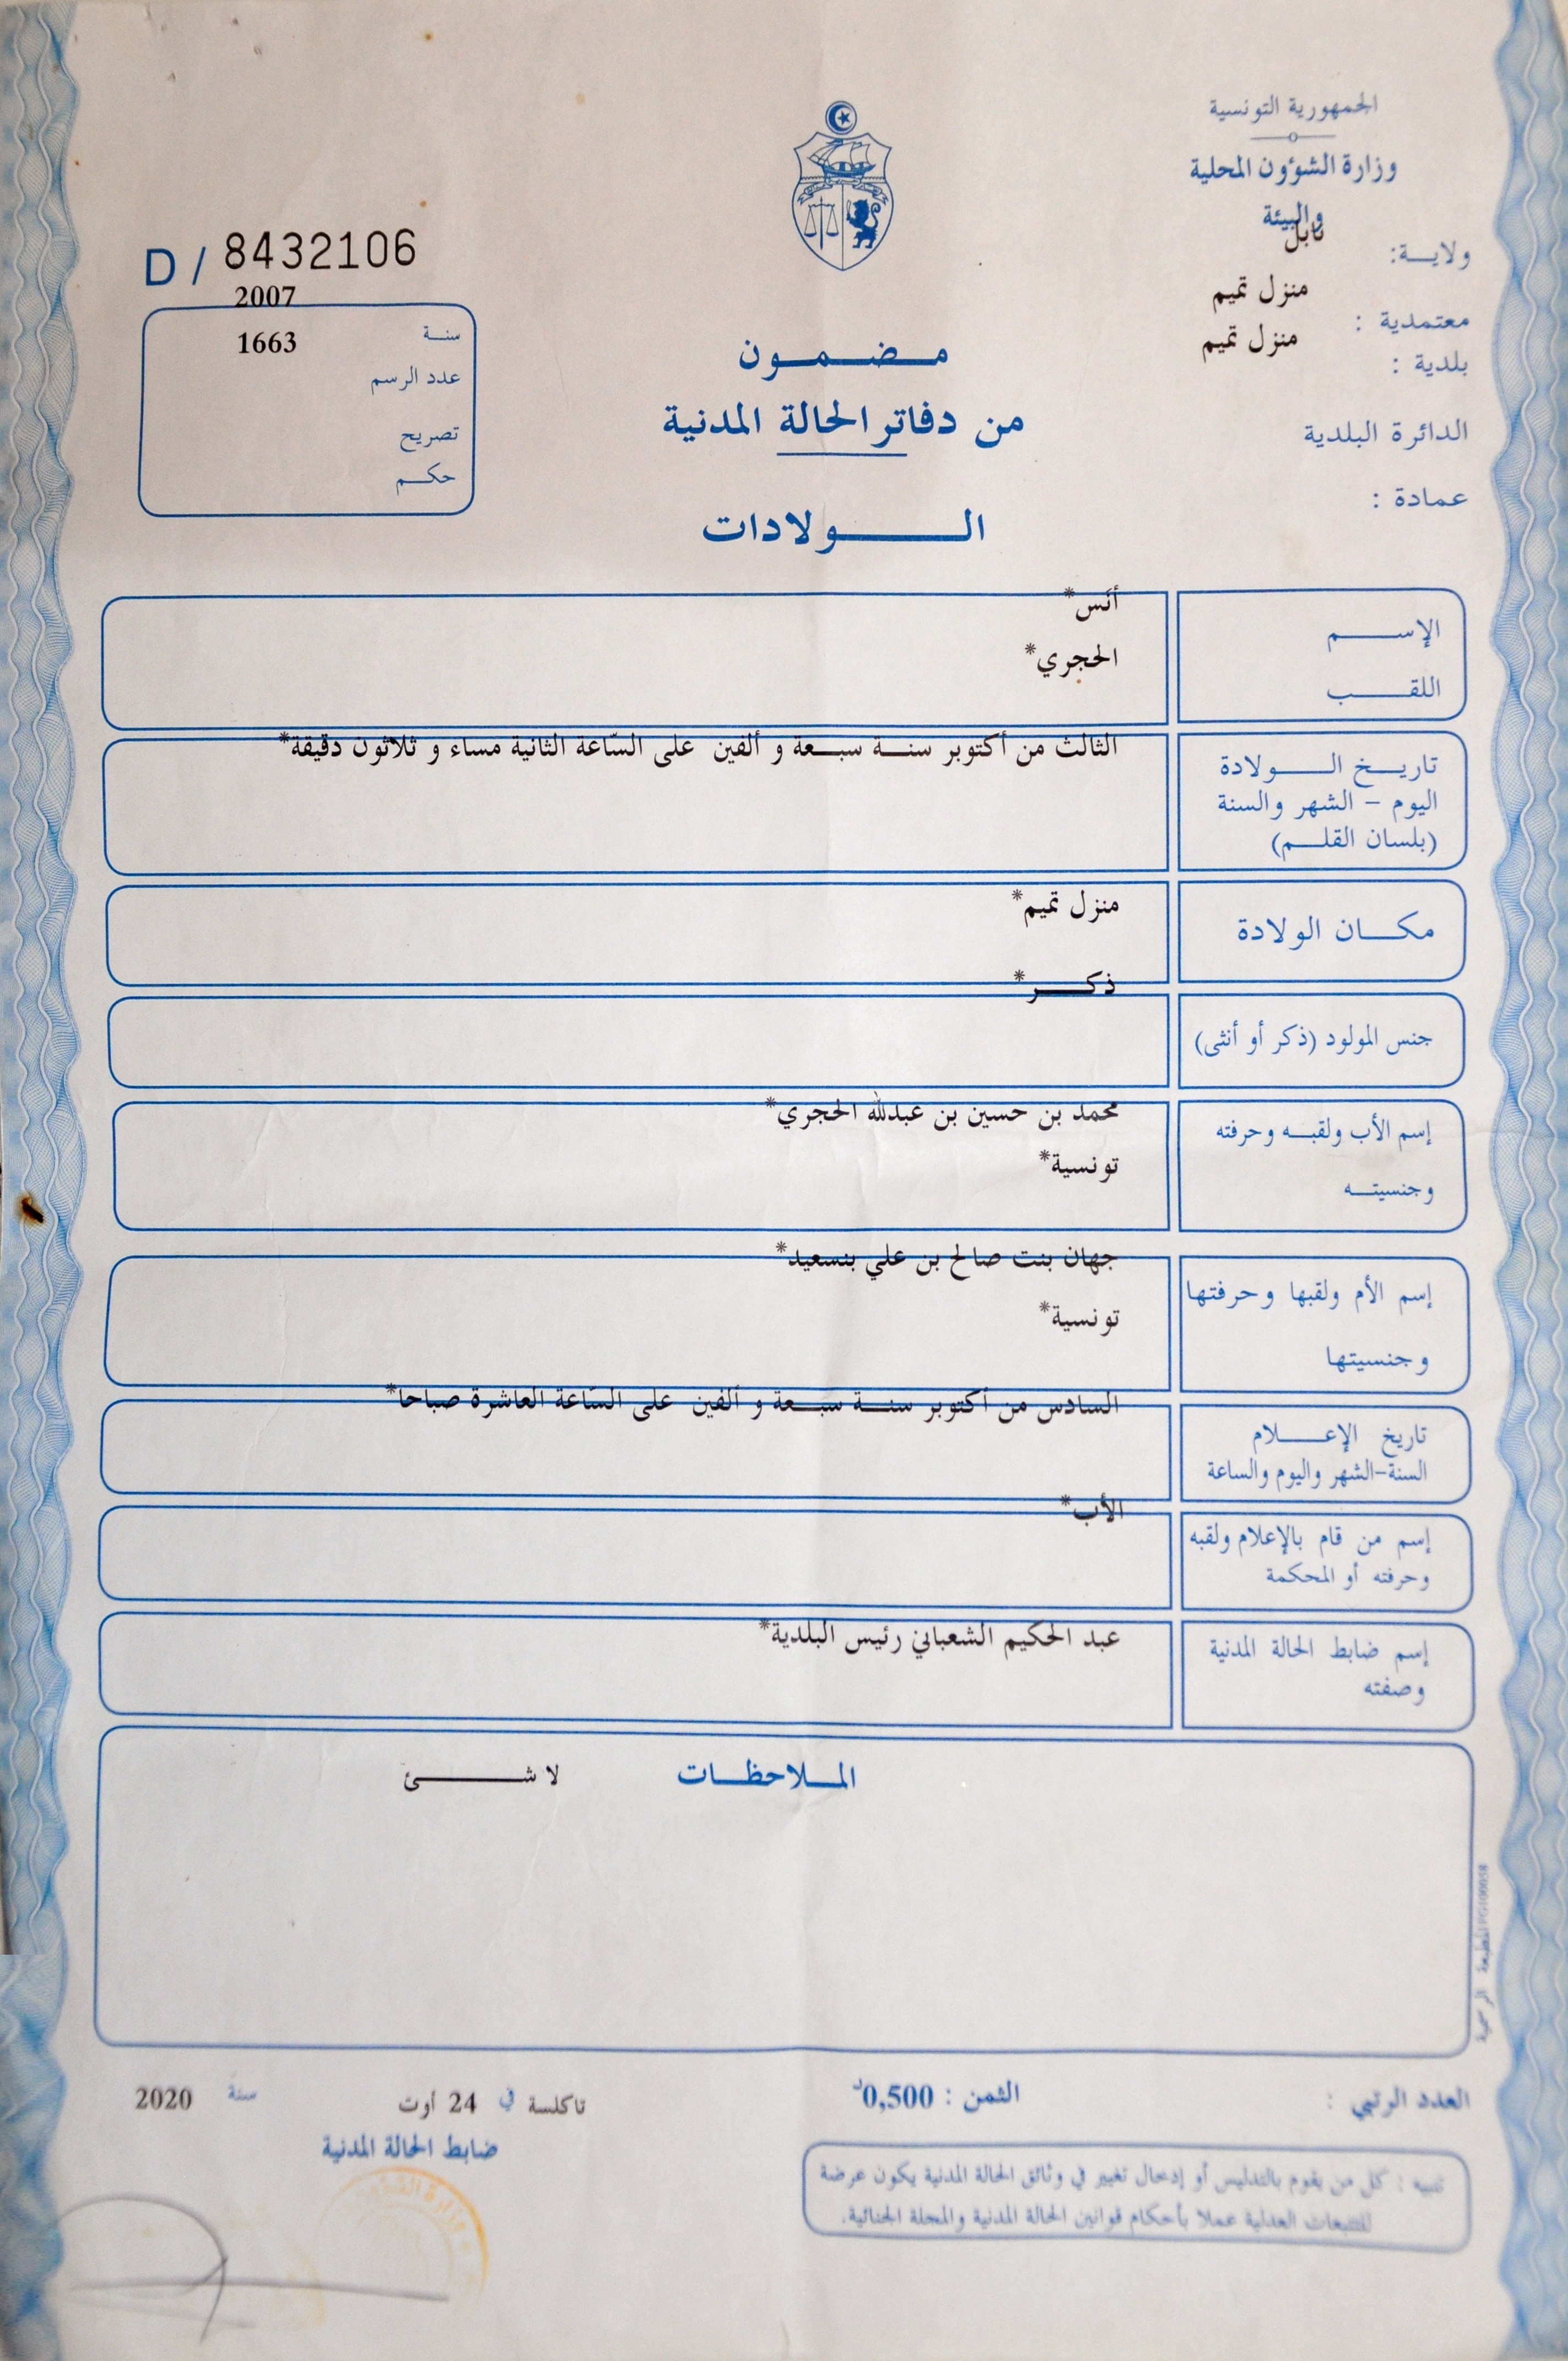 الجمهورية التونسية
وزارة الشؤون المحلية
والبيئة
ولاية: نابل
معتمدية : منزل تميم
بلدية : منزل تميم
الدائرة البلدية
عمادة :
D / 8432106
سنة 2007
عدد الرسم 1663
تصريح
حكم
مضمون
من دفاتر الحالة المدنية
الولادات
الإسم أنس*
اللقب الحجري*
تاريخ الولادة الثالث من أكتوبر سنة سبعة و ألفين على السّاعة الثانية مساء و ثلاثون دقيقة*
اليوم - الشهر والسنة
(بلسان القلم)
مكان الولادة منزل تميم*
جنس المولود (ذكر أو أنثى) ذكر*
إسم الأب ولقبه وحرفته محمد بن حسين بن عبدلله الحجري*
وجنسيته تونسية*
إسم الأم ولقبها وحرفتها جهان بنت صالح بن علي بنسعيد*
وجنسيتها تونسية*
تاريخ الإعلام السادس من أكتوبر سنة سبعة و ألفين على السّاعة العاشرة صباحا*
السنة-الشهر واليوم والساعة
إسم من قام بالإعلام ولقبه الأب*
وحرفته أو المحكمة
إسم ضابط الحالة المدنية عبد الحكيم الشعباني رئيس البلدية*
وصفته
الملاحظات لا شئ
المطبعة الرسمية
العدد الرتبي :
الثمن : 0,500د
تاكلسة في 24 أوت سنة 2020
ضابط الحالة المدنية
تنبيه : كل من يقوم بالتدليس أو إدخال تغيير في وثائق الحالة المدنية يكون عرضة
للتتبعات العدلية عملا بأحكام قوانين الحالة المدنية والمجلة الجنائية.